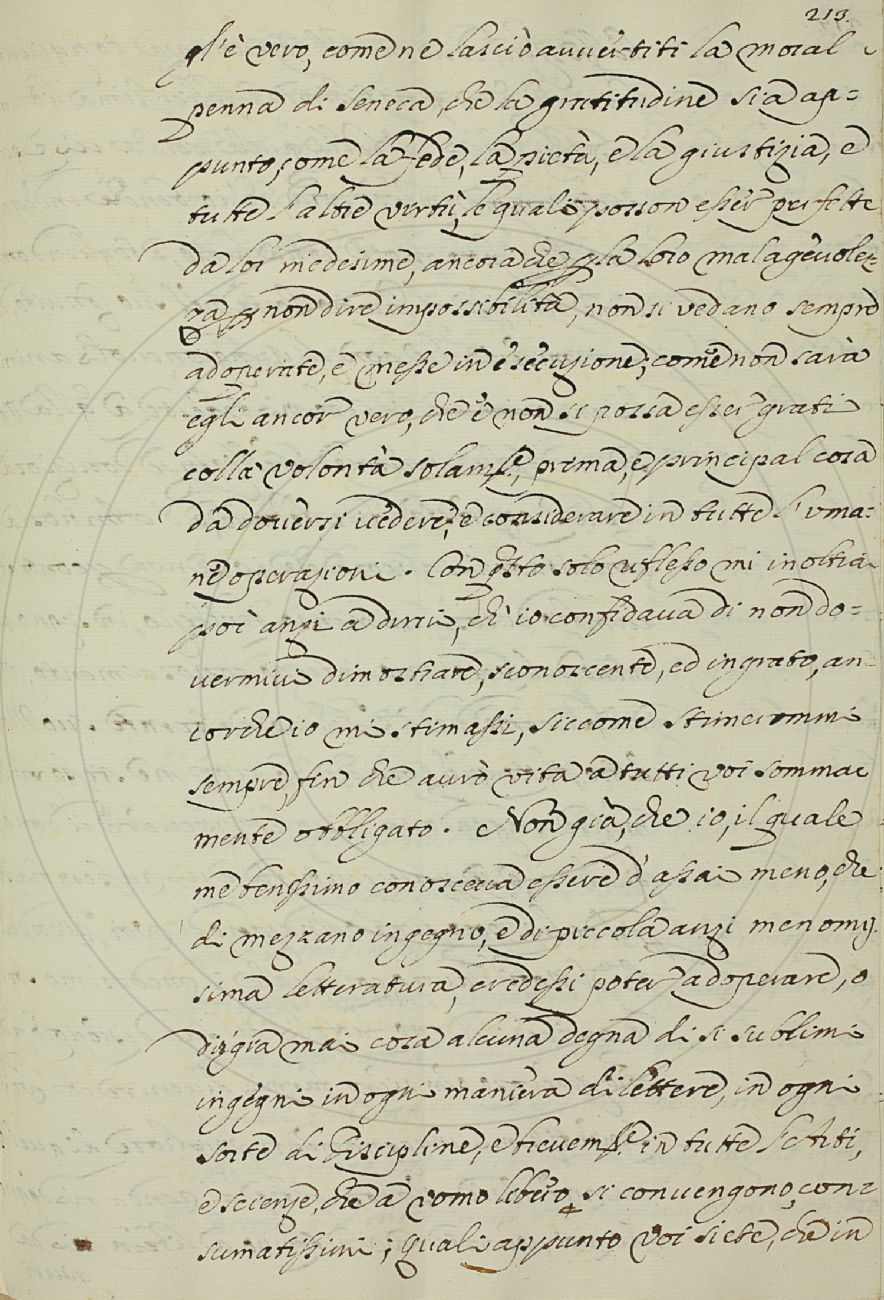 213.
gl'è vero, come ne lasciò avvertiti la moral
penna di Seneca, che la gratitudine sia ap=
punto, come la Fede, la pietà, e la giustizia, e
tutte l'altre virtù, le quali posson esser perfette
da lor medesime, ancora che p la loro malagevolez=
za p non dire impossibilità, non si vedano sempre
adoperate, e messe in esecuzione; come non sarà
egli ancor vero, che e' non si possa esser grati
colla volontà solam.te, prima, e principal cosa
da doversi vedere, e considerare in tutte l'uma=
ne operazioni. Con q.sto solo riflesso mi inoltra
poi anzi a dirvi, ch' io confidava di non do=
vermivi dimostrare, sconoscente, ed ingrato, an=
corche io mi stimassi, siccome stimerommi
sempre, fin che avrò vita a tutti voi somma
mente obbligato. Non già, che io, il quale
me benissimo conosceva essere d'assai meno, che
di mezzano ingegno, e di piccola anzi menomis
sima letteratura, credessi poter adoperare, o
dir già mai cosa alcuna degna di sì sublimi
ingegni in ogni maniera di lettere, in ogni
sorte di Discipline, e brevem.te in tutte le Arti,
e scienze, che a uomo libero si convengono, con=
sumatissimi; quali appunto voi siete, che in